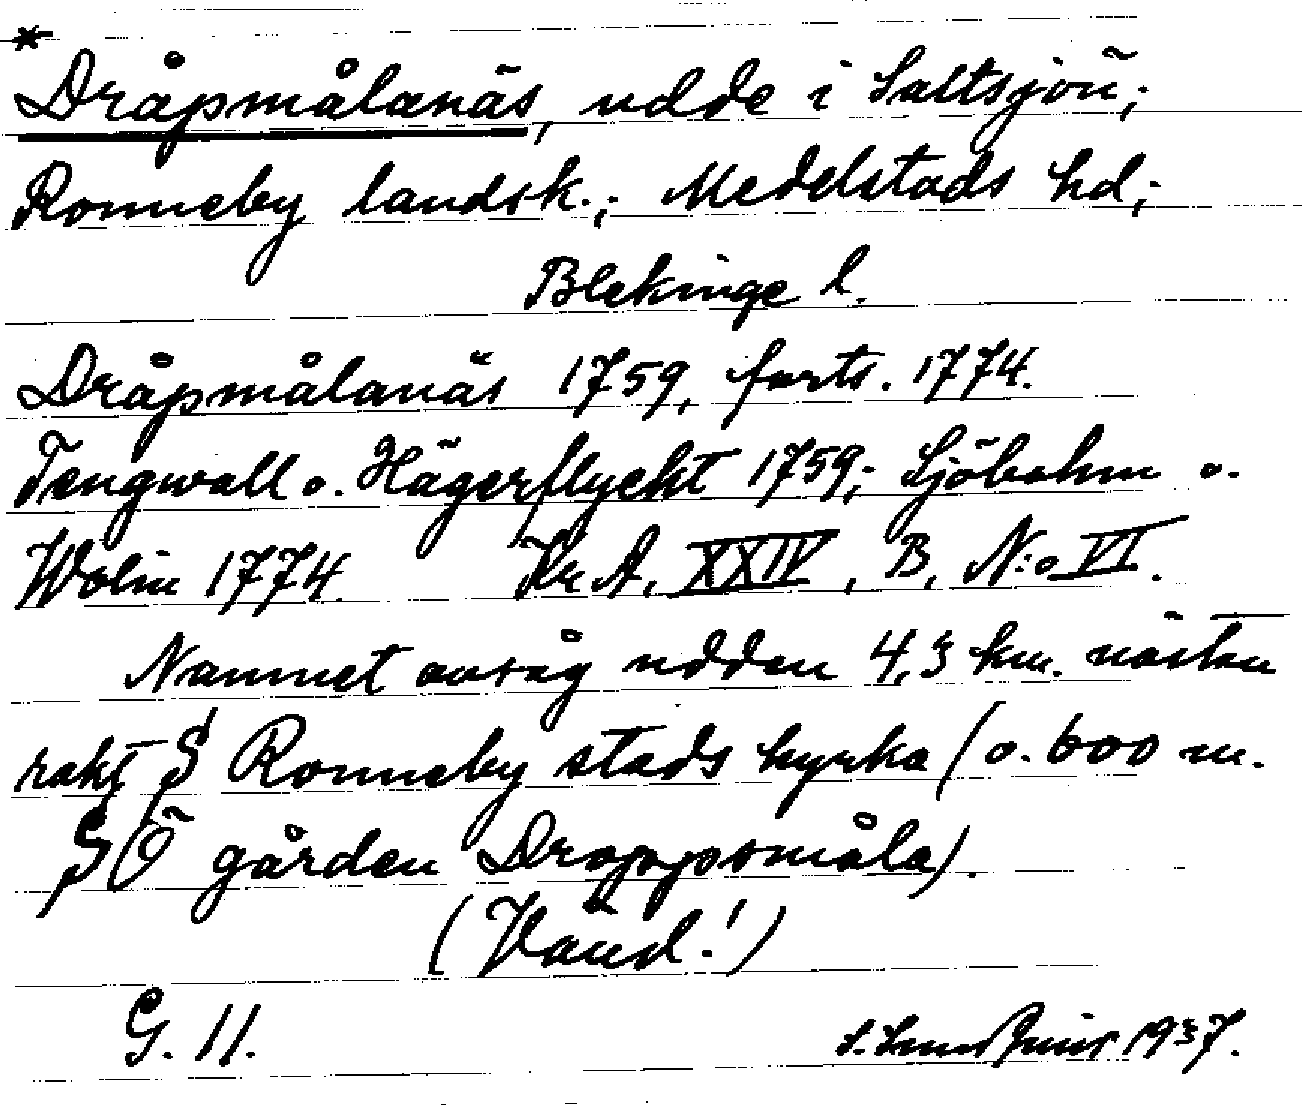 *
Dråpmålanäs, udde i Saltsjön;
Ronneby landsk.; Medelstads hd;
Blekinge l.
Dråpmålanäs 1759, forts. 1774.
Tengwall o. Hägerflycht 1759; Sjöbohm o.
Wolin 1774. Kr. A. XXIV, B, N:o VI.
Namnet avsåg udden 4,3 km. nästan
rakt S Ronneby stads kyrka (o. 600 m.
SÖ gården Droppsmåla).
(Vänd!)
G. 11.
1937.